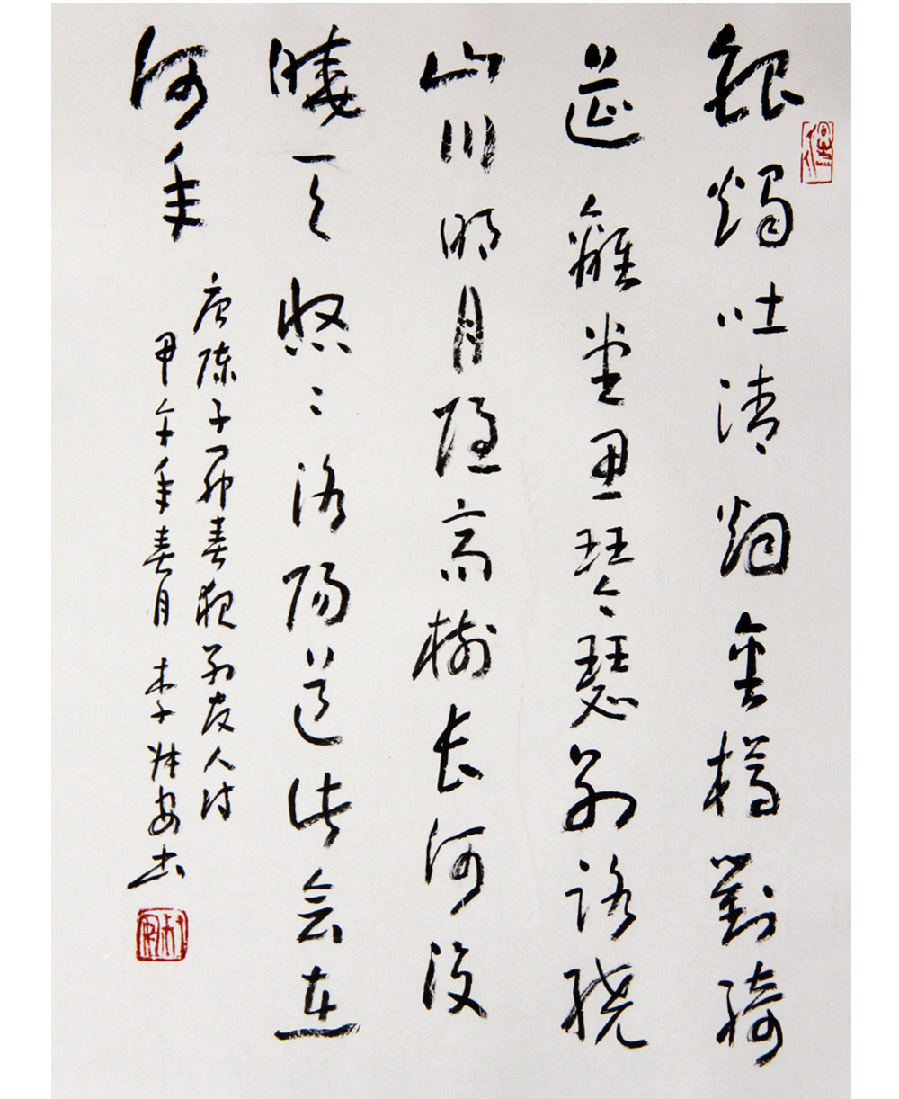 銀燭吐清烟金樽對綺
筵離堂思琴瑟別路繞
山川明月隱高樹長河没
曉天悠〻洛陽道此会在
何年
唐陈子昂春夜别友人诗
甲午年春月 李